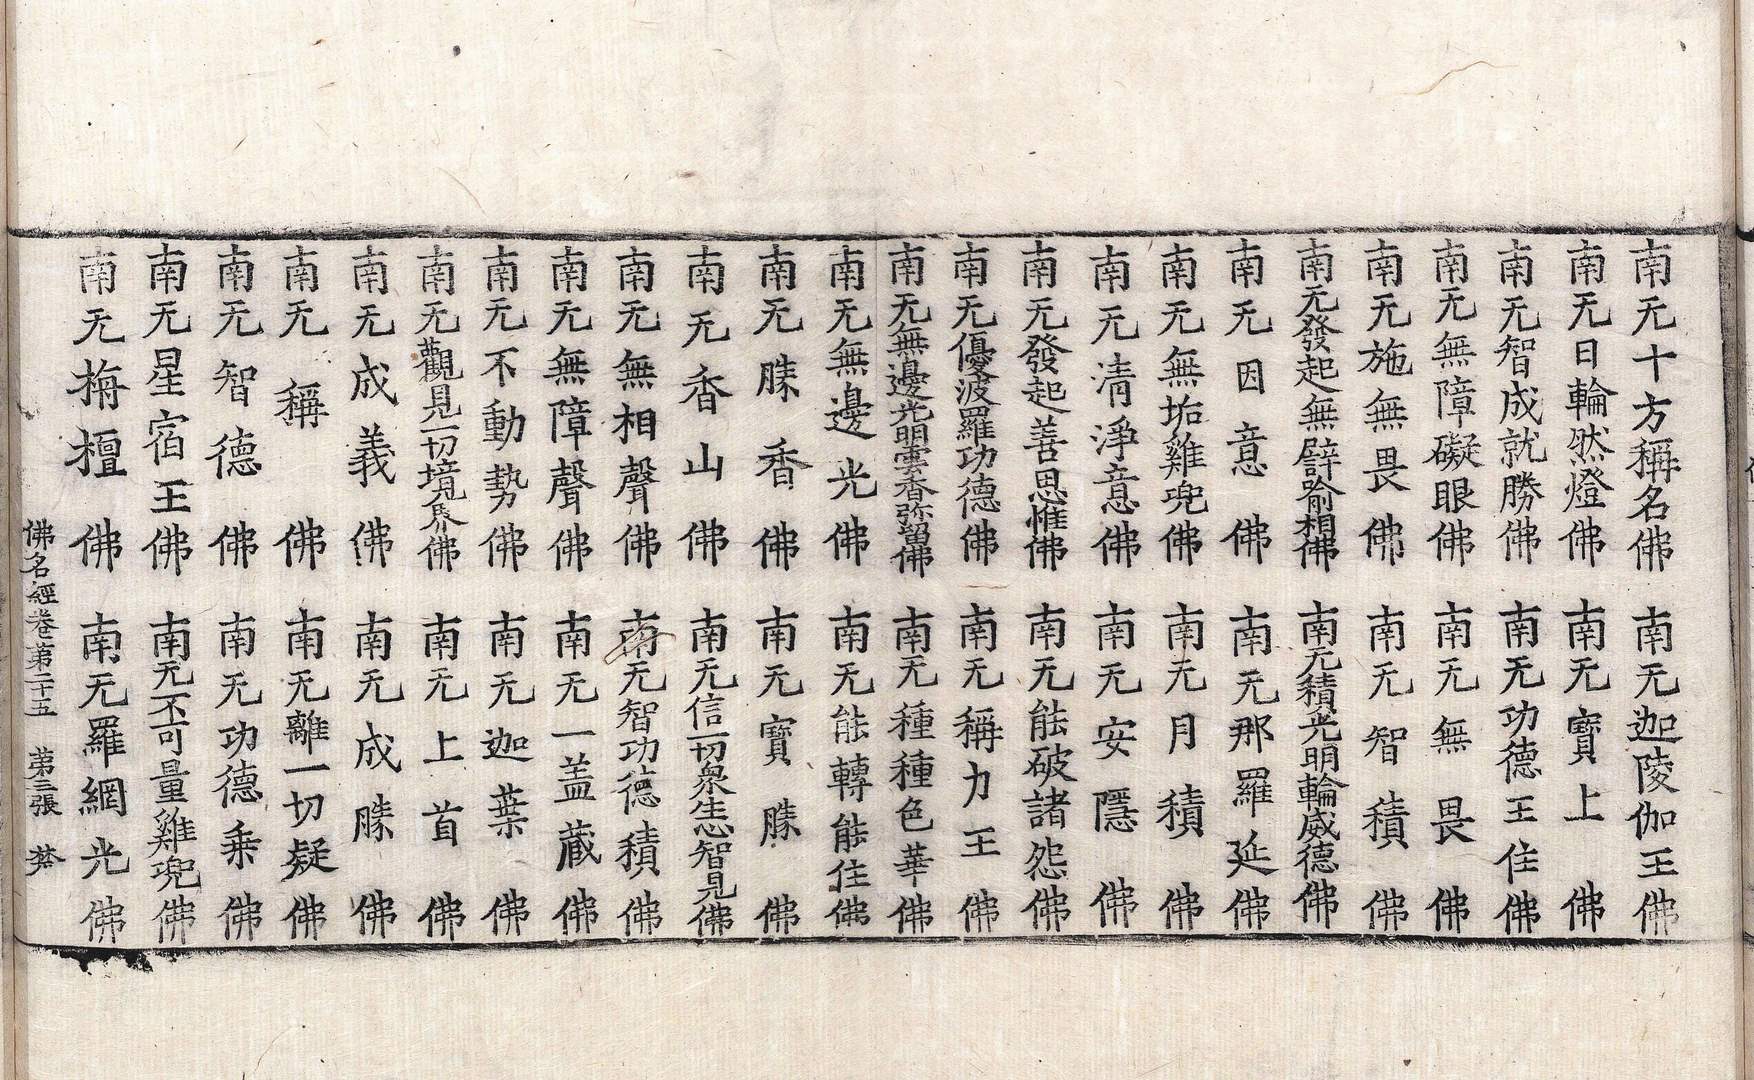 南无十方稱名佛　南无迦陵伽王佛
南无日輪然燈佛　南无寶上佛
南无智成就勝佛　南无功德王住佛
南无無障礙眼佛　南无無畏佛
南无施無畏佛　南无智積佛
南无發起無譬喻相佛　南无積光明輪威德佛
南无因意佛　南无那羅延佛
南无無垢雞兜佛　南无月積佛
南无清淨意佛　南无安隱佛
南无發起善思惟佛　南无能破諸怨佛
南无優波羅功德佛　南无稱力王佛
南无無邊光明雲香弥留佛　南无種種色華佛
南无無邊光佛　南无能轉能住佛
南无勝香佛　南无寶勝佛
南无香山佛　南无信一切衆生悊智見佛
南无無相聲佛　南无智功德積佛
南无無障聲佛　南无一盖藏佛
南无不動勢佛　南无迦葉佛
南无觀見一切境界佛　南无上首佛
南无成義佛　南无成勝佛
南无稱佛　南无離一切疑佛
南无智德佛　南无功德乘佛
南无星宿王佛　南无不可量雞兜佛
南无栴檀佛　南无羅網光佛
佛名經卷第二十五　第三張